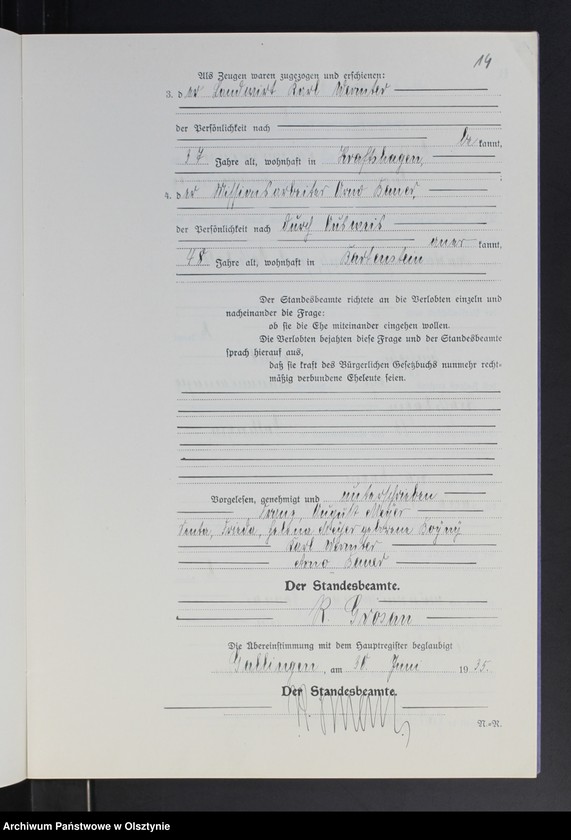 19
Als Zeugen waren zugezogen und erschienen:
3. der Landwirt Karl Wermter
der Persönlichkeit nach
be kannt,
37 Jahre alt, wohnhaft in Kraftshagen,
4. der Missionsarbeiter Arno
der Persönlichkeit nach durch Ausweis
aner kannt,
48 Jahre alt, wohnhaft in Bartenstein
Der Standesbeamte richtete an die Verlobten einzeln und
nacheinander die Frage:
ob sie die Ehe miteinander eingehen wollen.
Die Verlobten bejahten diese Frage und der Standesbeamte
sprach hierauf aus,
daß sie kraft des Bürgerlichen Gesetzbuchs nunmehr recht-
mäßig verbundene Eheleute seien.
Vorgelesen, genehmigt und unterschrieben
Franz August Meyer
Frieda, Meyer geborene
Karl Wermter
Arno
Der Standesbeamte.
R. Grosan
Die Übereinstimmung mit dem Hauptregister beglaubigt
Gallingen, am Juni 1935.
Der Standesbeamte.
N.=R.
Archiwum Państwowe w Olsztynie